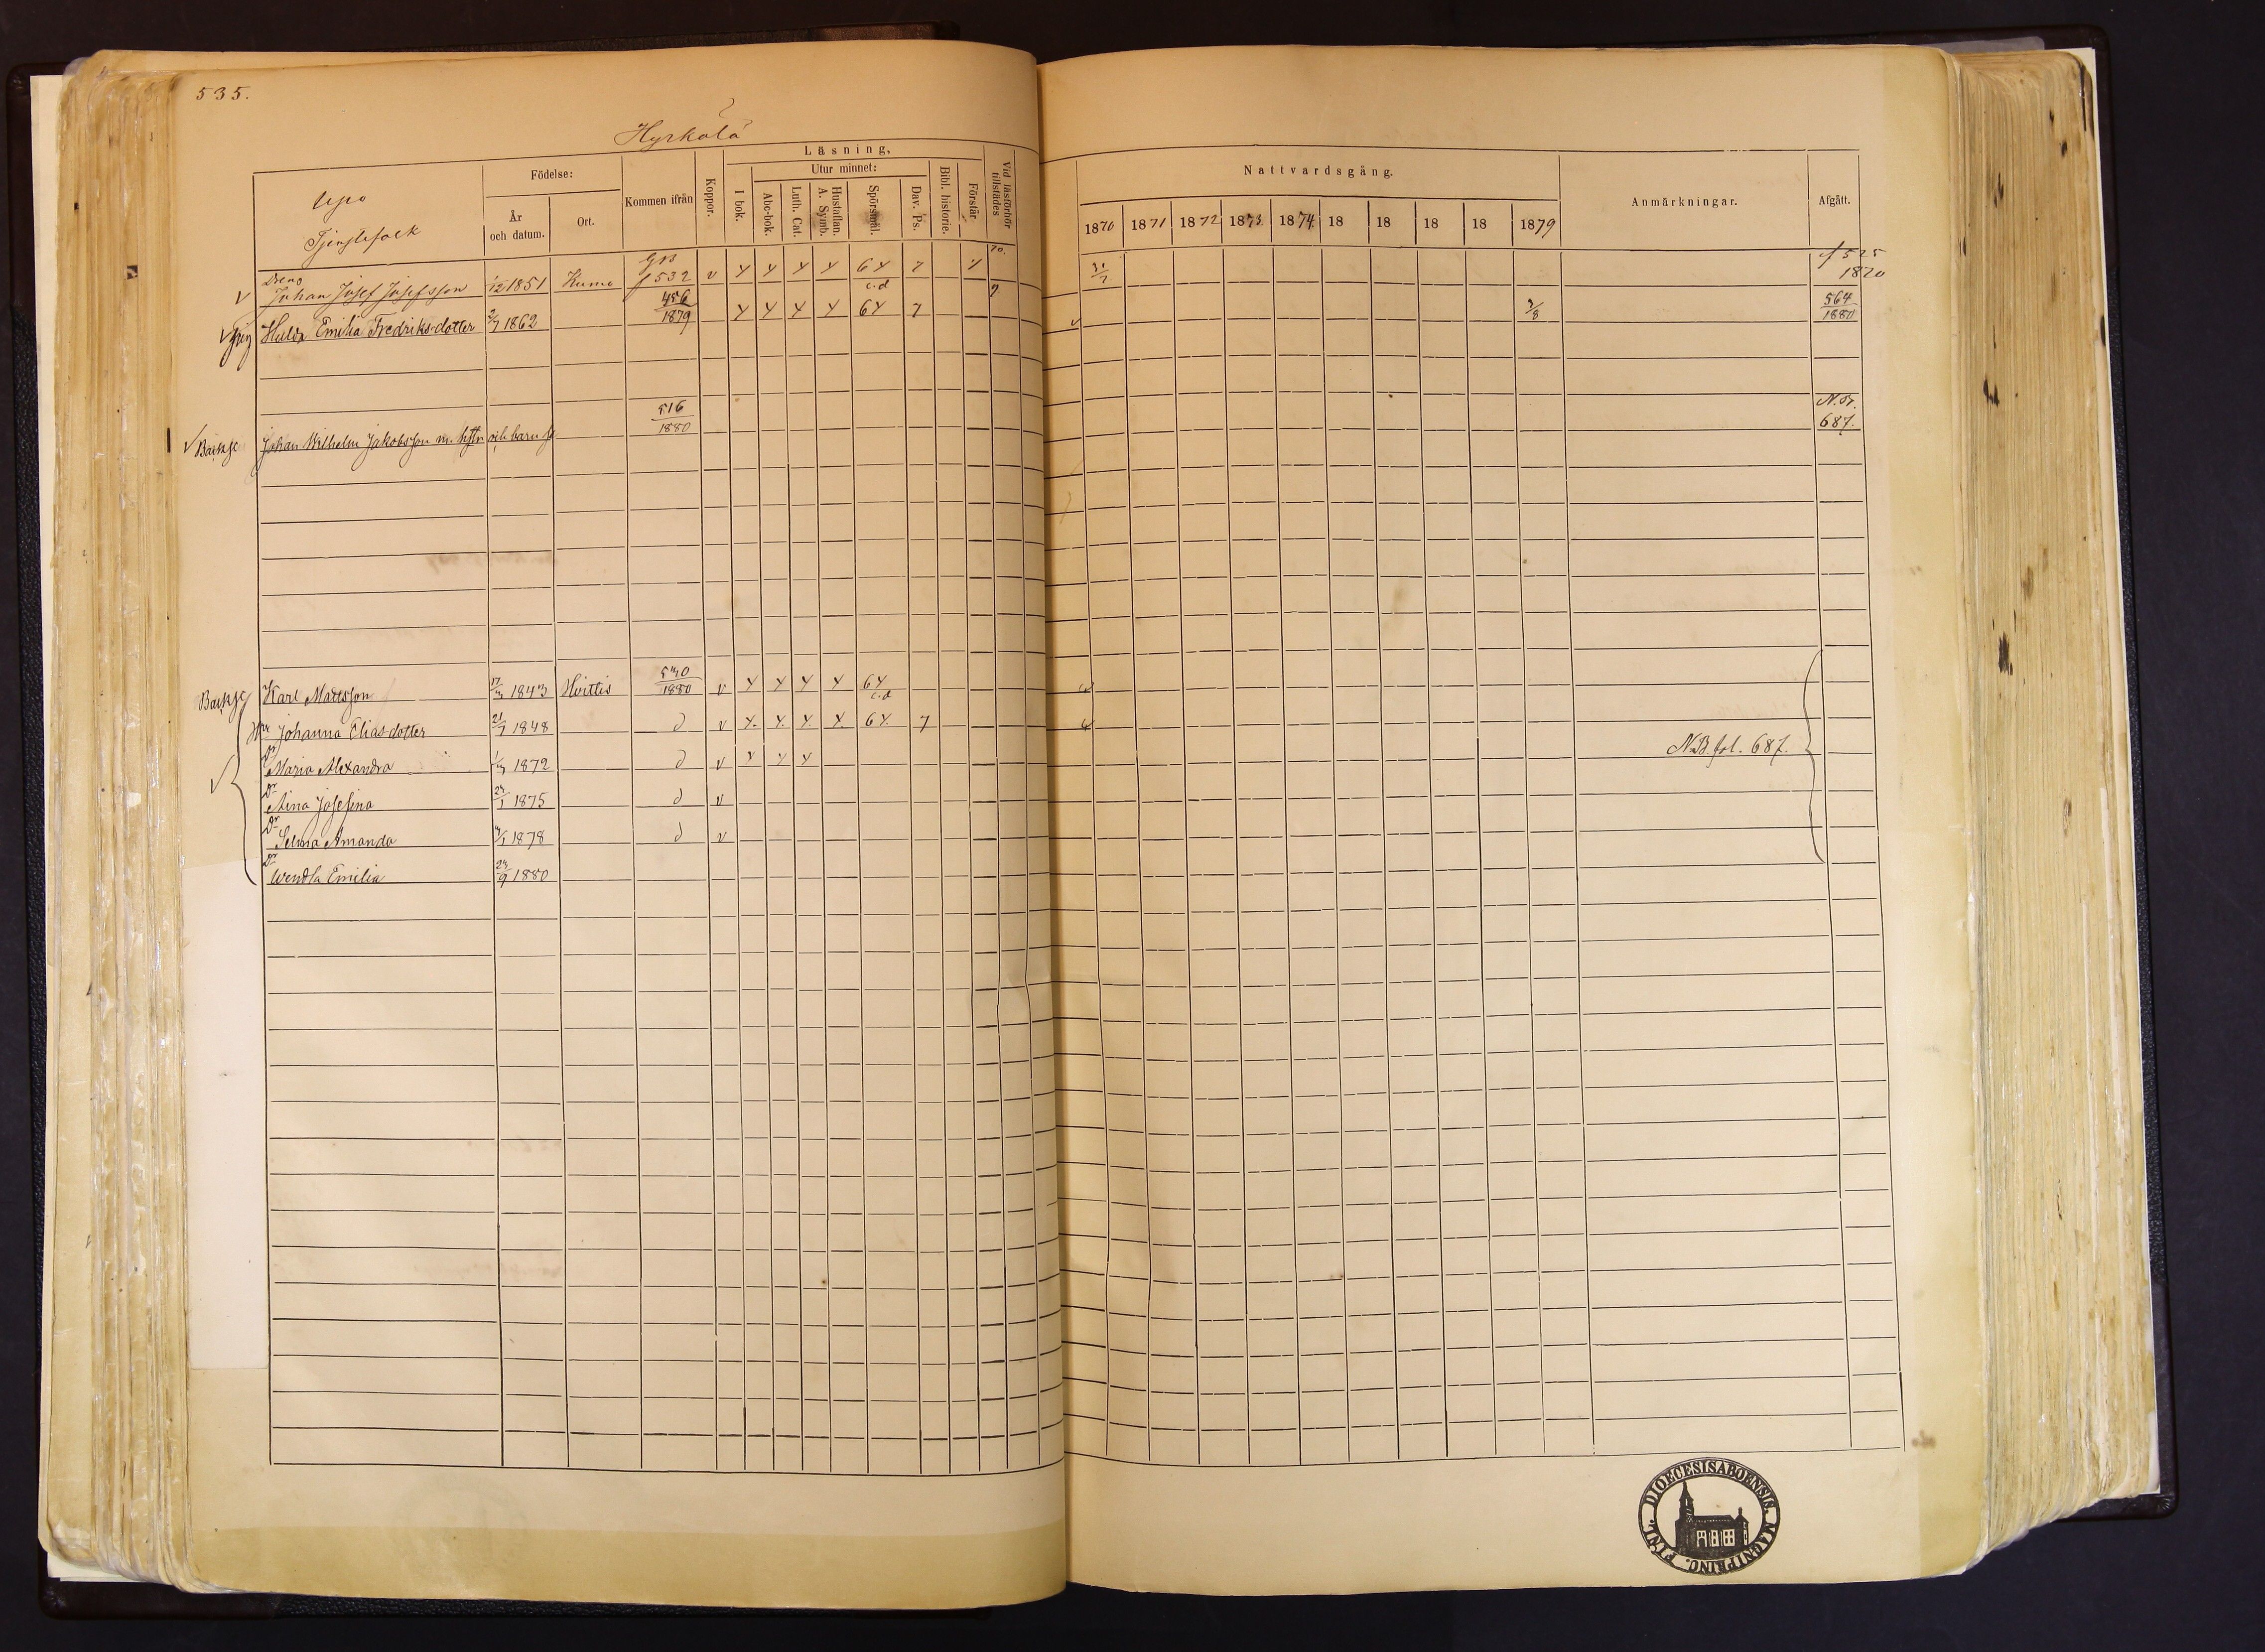 535.
Hyrkölä
Upo
Tjenstefolk
Födelse:
År och datum.
Ort.
Kommen ifrån
Koppor.
Läsning.
I bok.
Utur minnet:
Abc-bok.
Luth. Cat.
Hustaflan. A. Symb.
Spörsmål.
Dav. Ps.
Bibl. historie.
Förstår
Vid läsförhör tillstädes
Nattvardsgång.
1870 1871 1872 1873 1874 18 18 18 18 1879
Anmärkningar.
Afgått.
Dreng
Johan Josef Josefsson 1/12 1851 Kumo f 532 v 70. f 525 1870
c.d
Pig Hulda Emilia Fredriks-dotter 2/7 1862 456/1879 564/1880
Backst Johan Wilhelm Jakobsson m. hstn och barn 516/1880 N.B. 687.
Backst Karl Mattsson 17/3 1843 Hvittis 530/1880 v
c.d
Hu Johanna Elias-dotter 21/7 1848 d v
Dr Maria Alexandra 1/3 1872 d v
N.B. fol. 687.
Dr Aina Josefina 23/1 1875 d v
Dr Selma Amanda 1878 d v
Dr Wendla Emilia 23/9 1880
DIOECESIS ABOENSIS. MAGNI PRINC. FINL.